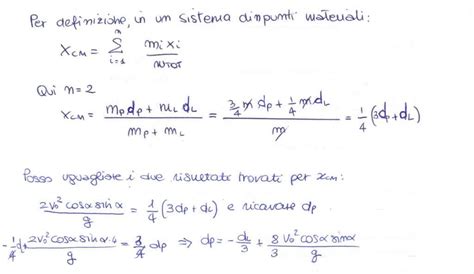 Per definizione, in un sistema di punti materiali:
x_CM = Σ_{i=1}^{n} m_i x_i / m_TOT
Qui n=2
x_CM = (m_P d_P + m_L d_L) / (m_P + m_L) = (3/4 m d_P + 1/4 m d_L) / m = 1/4 (3d_P + d_L)
Posso uguagliare i due risultati trovati per x_CM:
2v_0² cosα sinα / g = 1/4 (3d_P + d_L) e ricavare d_P
-1/4 d_L + 2v_0² cosα sinα·4 / g = 3/4 d_P ⇒ d_P = -d_L/3 + 8/3 v_0² cosα sinα / g